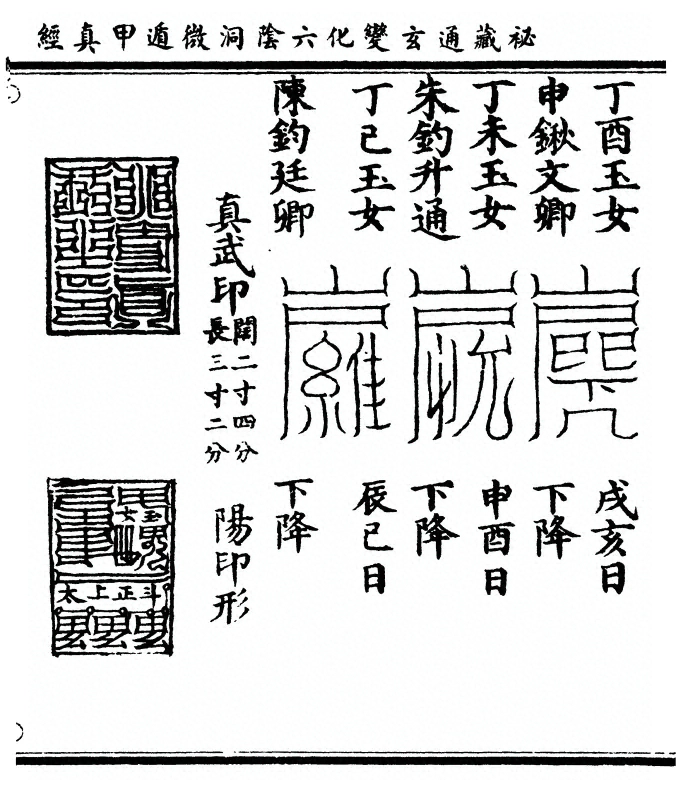 秘藏通玄變化六陰洞微遁甲真經
丁酉玉女
申鍬文卿
戌亥日
下降
丁未玉女
朱鈞升通
申酉日
下降
丁巳玉女
陳鈞廷卿
辰巳日
下降
真武印
闊二寸四分
長三寸二分
陽印形
玉
女
斗正上太